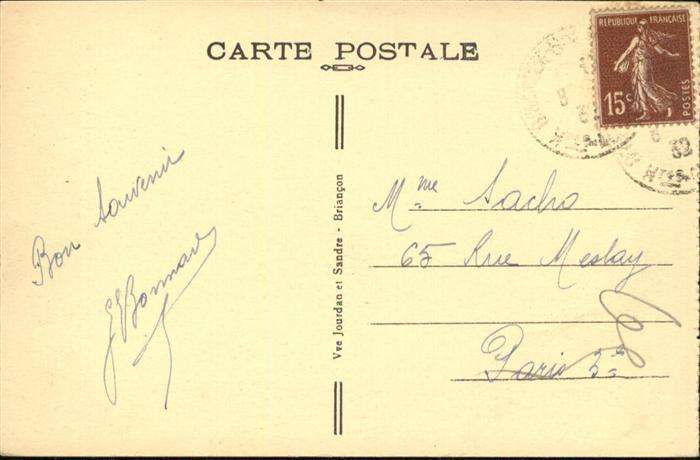 CARTE POSTALE
RÉPUBLIQUE FRANÇAISE
15c
POSTES
Bon Souvenir
Vve Jourdan et Sandre - Briançon
Mme Sacho
65 Rue Meslay
Paris 3e